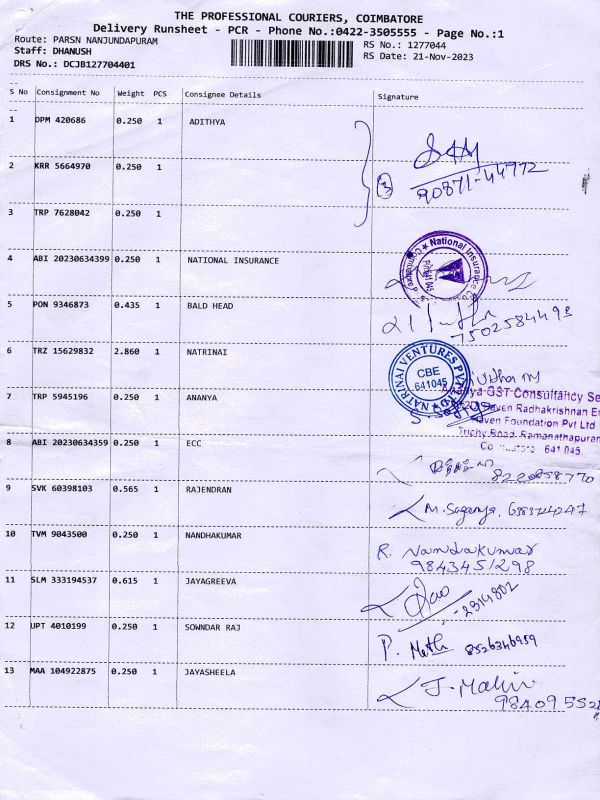 THE PROFESSIONAL COURIERS, COIMBATORE
Delivery Runsheet - PCR - Phone No.:0422-3505555 - Page No.:1
Route: PARSN NANJUNDAPURAM
RS No.: 1277044
Staff: DHANUSH
RS Date: 21-Nov-2023
DRS No.: DCJB127704401
S No Consignment No Weight PCS Consignee Details Signature
1 DPM 420686 0.250 1 ADITHYA
2 KRR 5664970 0.250 1
3 90871-44772
3 TRP 7628042 0.250 1
4 ABI 20230634399 0.250 1 NATIONAL INSURANCE
National Insurance Co
5 PON 9346873 0.435 1 BALD HEAD
7502584498
6 TRZ 15629832 2.860 1 NATRINAI
NATRINAI VENTURES PVT LTD
CBE
641045
7 TRP 5945196 0.250 1 ANANYA
Ananya GST Consultancy Se
Haven Radhakrishnan En
Haven Foundation Pvt Ltd
Trichy Road, Ramanathapuram
641 045
8 ABI 20230634359 0.250 1 ECC
9 SVK 60398103 0.565 1 RAJENDRAN
M. Saganya,
10 TVM 9043500 0.250 1 NANDHAKUMAR
R. Nandakumar
9843451298
11 SLM 333194537 0.615 1 JAYAGREEVA
Rao
-2314802
12 UPT 4010199 0.250 1 SOWNDAR RAJ
P. Neth 8526346959
13 MAA 104922875 0.250 1 JAYASHEELA
J. Malini
984095521